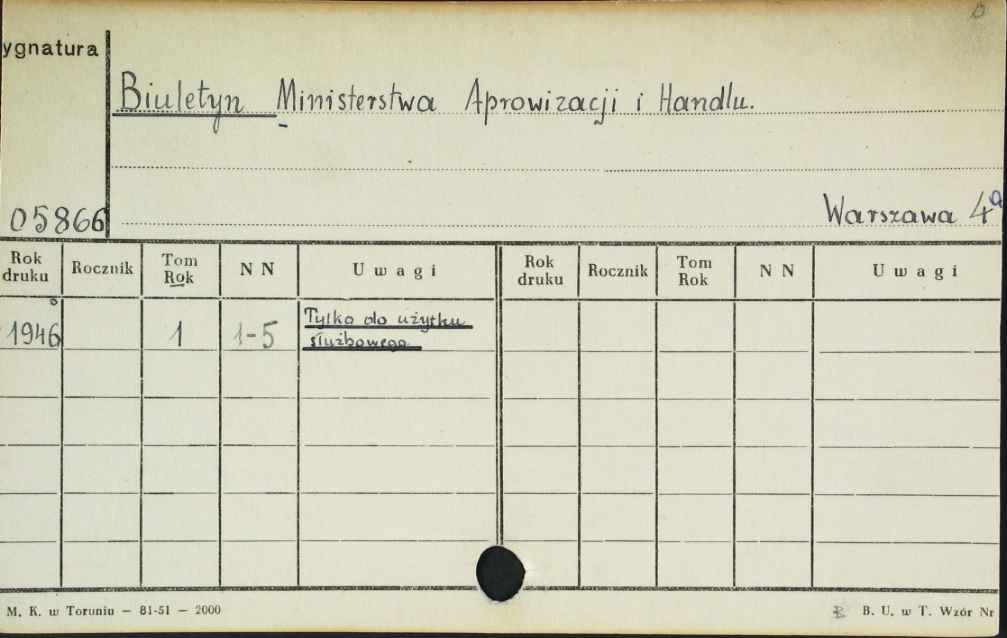 ygnatura
Biuletyn Ministerstwa Aprowizacji i Handlu.
05866
Warszawa 4°
Rok druku Rocznik Tom Rok N N Uwagi Rok druku Rocznik Tom Rok N N Uwagi
1946 1 1-5 Tylko do użytku
służbowego
M. K. w Toruniu — 81-51 — 2000
B. U. w T. Wzór Nr